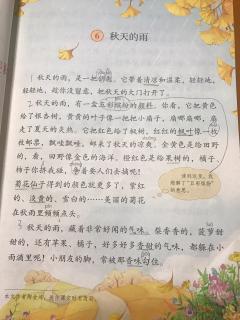 6 秋天的雨
1 秋天的雨,是一把钥匙。它带着清凉和温柔,轻轻地,
轻轻地,趁你没留意,把秋天的大门打开了。
2 秋天的雨,有一盒五彩缤纷的颜料。你看,它把黄色
给了银杏树,黄黄的叶子像一把把小扇子,扇哪扇哪,扇
走了夏天的炎热。它把红色给了枫树,红红的枫叶像一枚
枚邮票,飘哇飘哇,邮来了秋天的凉爽。金黄色是给田野
的,看,田野像金色的海洋。橙红色是给果树的,橘子、
柿子你挤我碰,争着要人们去摘呢!
菊花仙子得到的颜色就更多了,紫红
的、淡黄的、雪白的……美丽的菊花
在秋雨里频频点头。
读到这里,我
理解了“五彩缤纷”
的意思。
3 秋天的雨,藏着非常好闻的气味。梨香香的,菠萝甜
甜的,还有苹果、橘子,好多好多香甜的气味,都躲在小
雨滴里呢!小朋友的脚,常被那香味勾住。